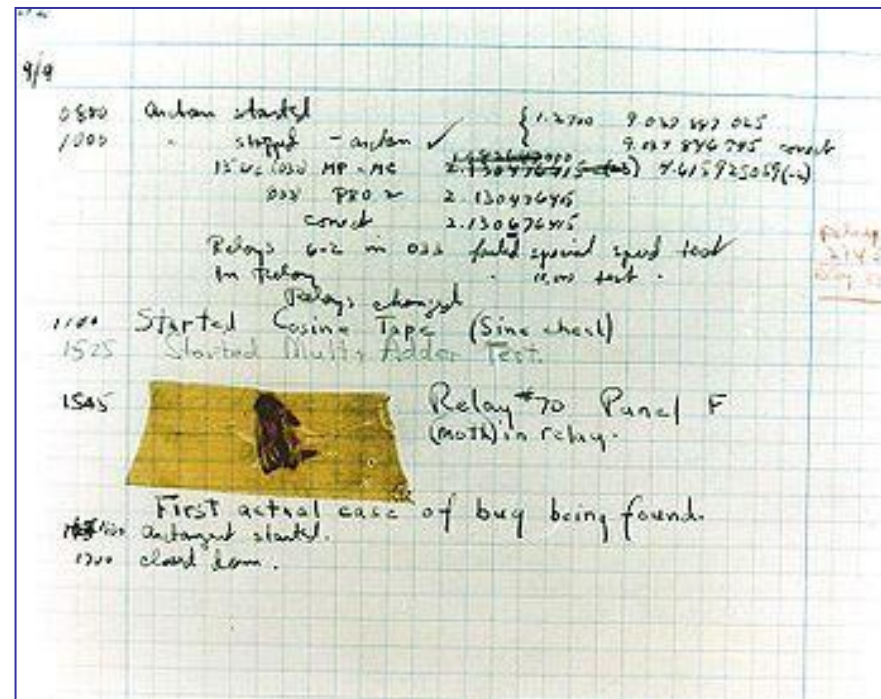 9/9
0800 Antan started
1000 " stopped - antan ✓ { 1.2700 9.037 847 025
9.037 846 795 correct
13"uc (032) MP - MC 2.130476415 (-3) 4.615925059(-2)
033 PRO 2 2.130476415
correct 2.130676415
Relays 6-2 in 033 failed special speed test
In Relay " 11.000 test .
Relays changed
1100 Started Cosine Tape (Sine check)
1525 Started Multi Adder Test.
1545 Relay #70 Panel F
(moth) in relay.
First actual case of bug being found.
1630 antangent started.
1700 closed down.
Relay